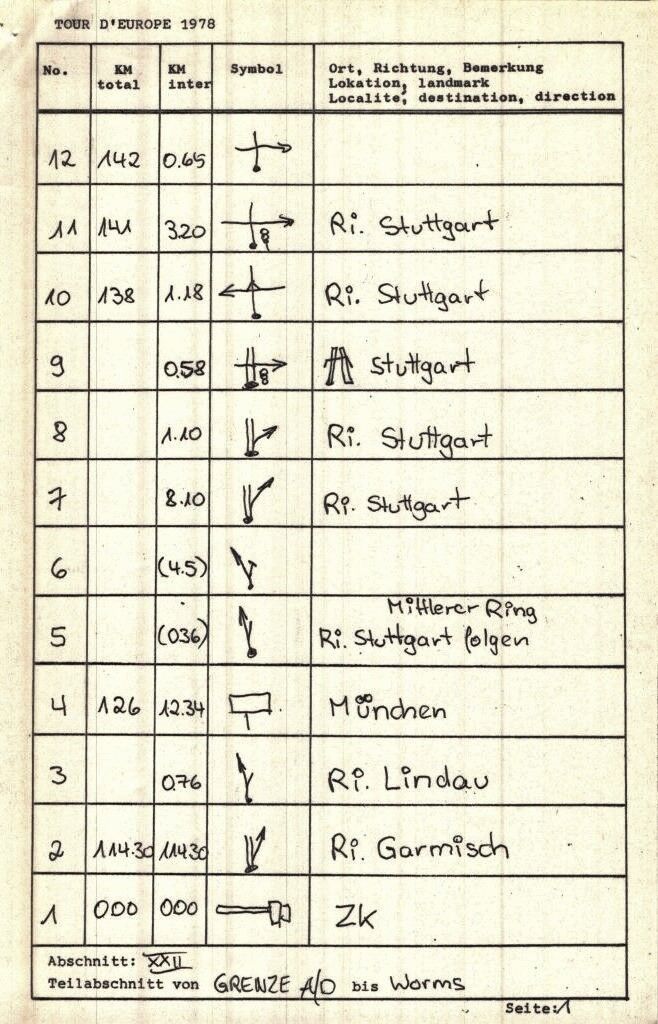 TOUR D'EUROPE 1978
No. KM total KM inter Symbol Ort, Richtung, Bemerkung
Lokation, landmark
Localite, destination, direction
12 142 0.65
11 141 3.20 Ri. Stuttgart
10 138 1.18 Ri. Stuttgart
9 0.58 Stuttgart
8 1.10 Ri. Stuttgart
7 8.10 Ri. Stuttgart
6 (4.5)
Mittlerer Ring
5 (036) Ri. Stuttgart folgen
4 126 12.34 München
3 0.76 Ri. Lindau
2 114.30 114.30 Ri. Garmisch
1 000 000 ZK
Abschnitt: XXII
Teilabschnitt von GRENZE A/D bis Worms
Seite:1